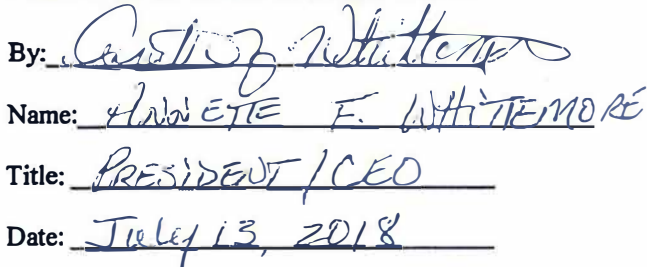 By: Whittemore
Name: ANNETTE F. WHITTEMORE
Title: PRESIDENT / CEO
Date: July 13, 2018